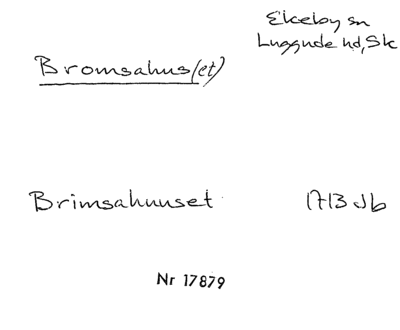 Ekeby sn
Luggude hd, Sk
Bromsahus(et)
Brimsahuuset 1713 Jb
Nr 17879